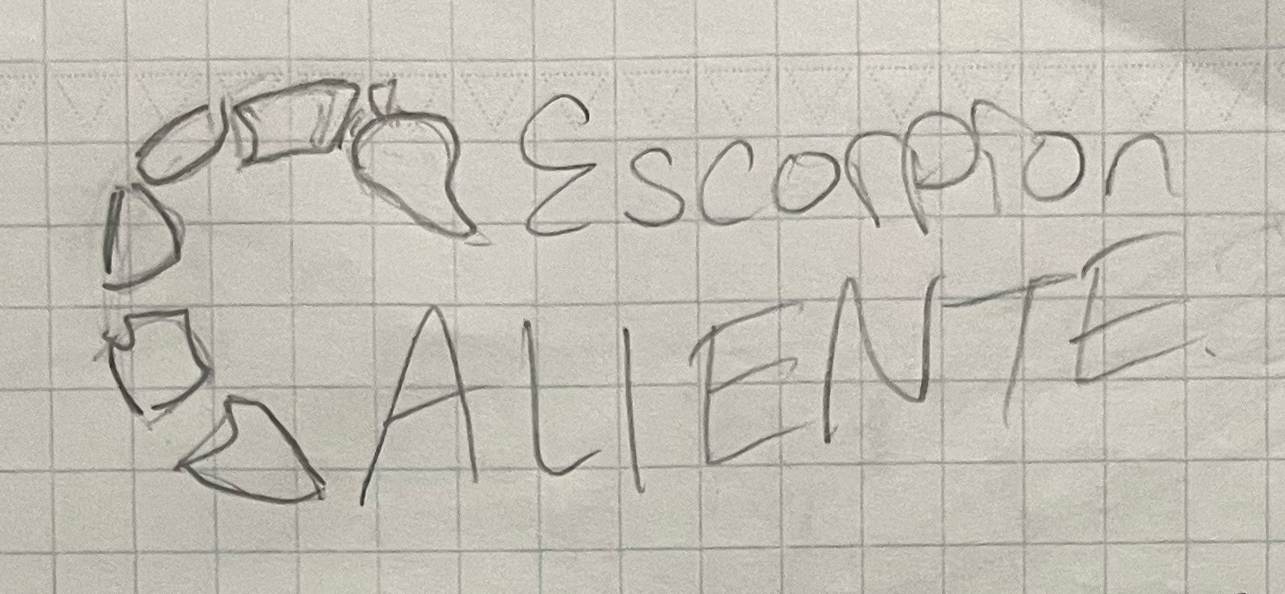 Escorpion
CALIENTE.